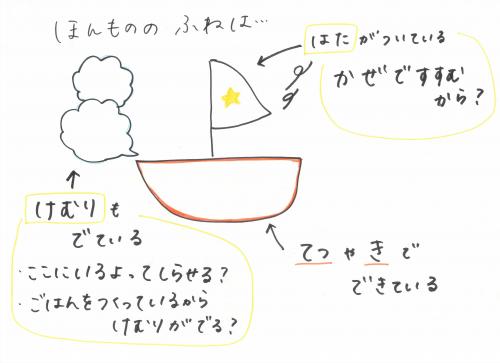 ほんものの ふねは…
はたがついている
かぜですすむ
から？
けむりも
でている
・ここにいるよってしらせる？
・ごはんをつくっているから
けむりがでる？
てつやきで
できている